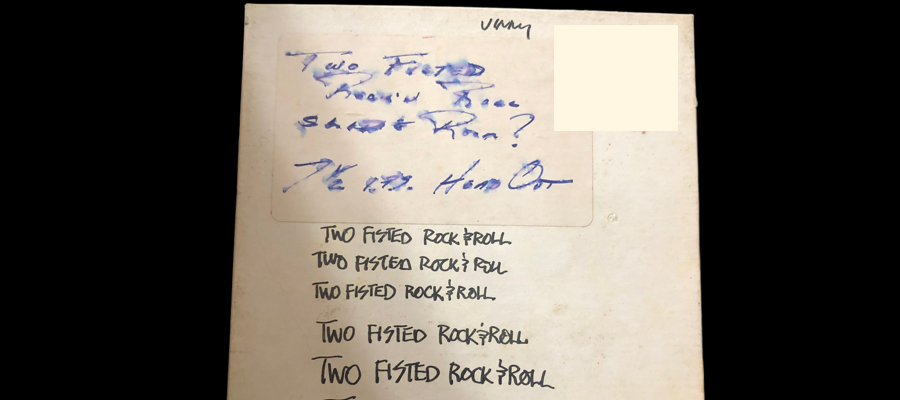 Vinny
Two Fisted
Rock'n Roll
? 
7½ I.P.S. Head Out
TWO FISTED ROCK & ROLL
TWO FISTED ROCK & ROLL
TWO FISTED ROCK & ROLL
TWO FISTED ROCK & ROLL
TWO FISTED ROCK & ROLL